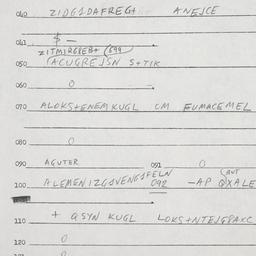 040 ZIDG1DAFREG+ ANEJCE
041 $ —
ZITMIRGREB+ (699
050 (ACUGREJSN S+TIK
060 0
070 ALOKS+ENEM KUGL OM FUMACEMEL
080 0
090 AGUTER 091 0
ALEMENIZGSVENGSFELN (AUT
100 092 -AP QXALE
110 + QSYN KUGL LOKS+NTEJGPAXC
120 0